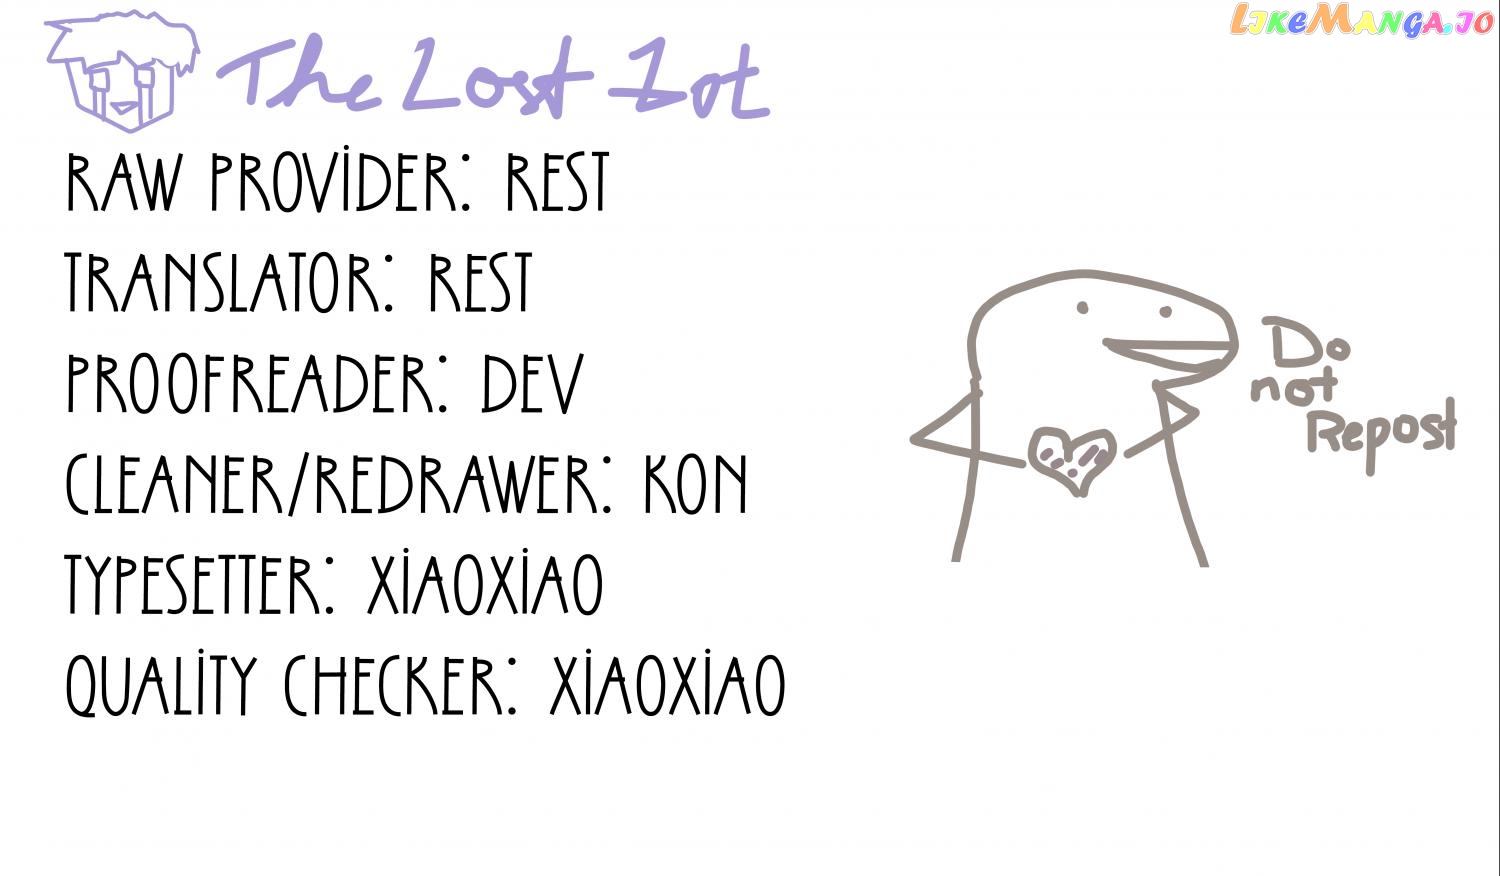 LIKEMANGA.IO
The Lost Lot
RAW PROVIDER: REST
TRANSLATOR: REST
PROOFREADER: DEV
CLEANER/REDRAWER: KON
TYPESETTER: XIAOXIAO
QUALITY CHECKER: XIAOXIAO
Do
not
Repost